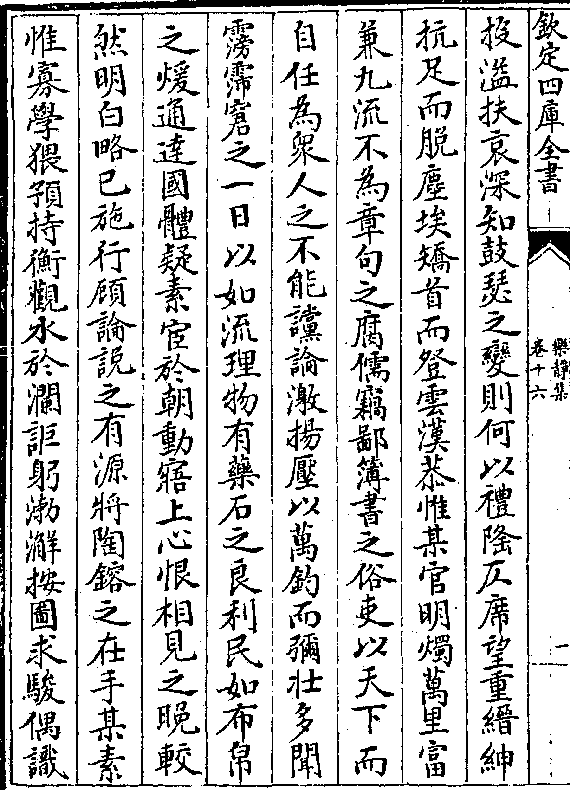 欽定四庫全書
樂靜集
卷十六
一
投溢扶衰深知鼓瑟之變則何以禮隆仄席望重縉紳
抗足而脫塵埃矯首而登雲漢恭惟某官明燭萬里富
兼九流不為章句之腐儒竊鄙簿書之俗吏以天下而
自任為衆人之不能讜論激揚壓以萬鈞而彌壮多聞
霶霈窘之一日以如流理物有藥石之良利民如布帛
之煖通達國體疑素宦於朝動寤上心恨相見之晚較
然明白略已施行顧論説之有源將陶鎔之在手某素
惟寡學猥預持衡觀水於瀾詎躬渤澥按圖求駿偶識